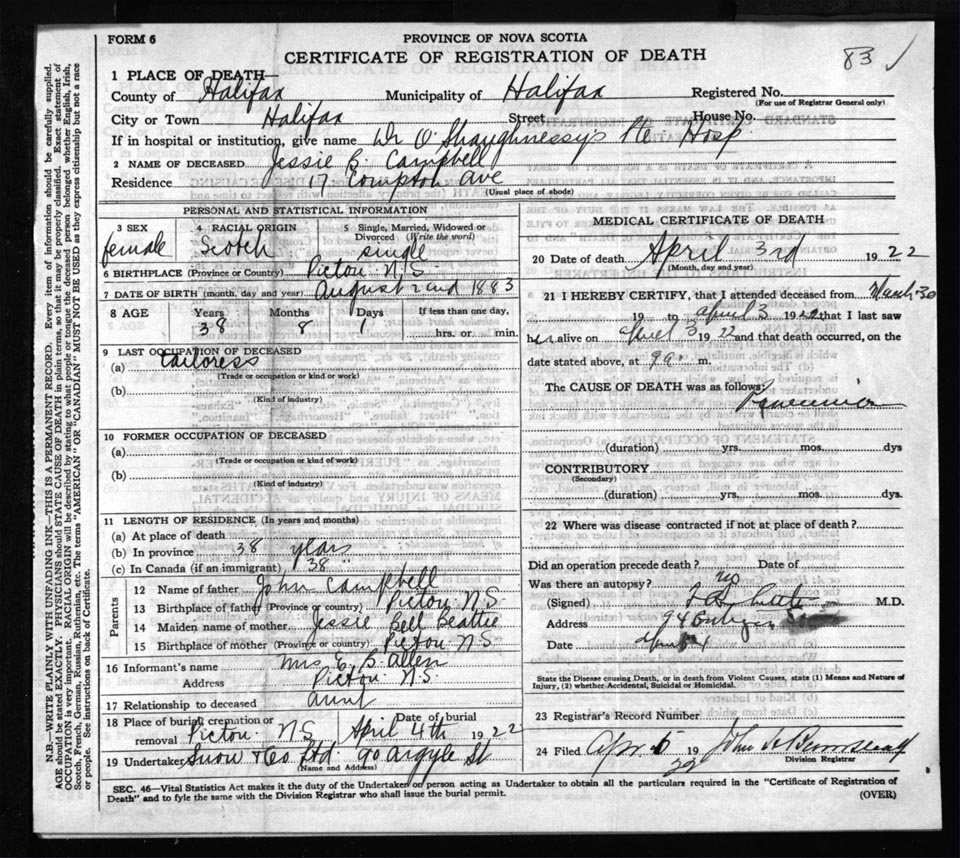 FORM 6
PROVINCE OF NOVA SCOTIA
CERTIFICATE OF REGISTRATION OF DEATH
83 ✓
N.B.—WRITE PLAINLY WITH UNFADING INK—THIS IS A PERMANENT RECORD. Every item of information should be carefully supplied.
AGE should be stated EXACTLY. PHYSICIANS should STATE CAUSE OF DEATH in plain terms, so that it may be properly classified. Exact statement of
OCCUPATION is very important. RACIAL ORIGIN will be described by stating to what people or tongue the deceased person belonged whether English, Irish,
Scotch, French, German, Russian, Ruthenian, etc. The terms "AMERICAN" OR "CANADIAN" MUST NOT BE USED as they express citizenship but not a race
or people. See instructions on back of Certificate.
1 PLACE OF DEATH—
County of Halifax Municipality of Halifax Registered No.
(For use of Registrar General only)
City or Town Halifax Street House No.
If in hospital or institution, give name Dr O'Shaughnessy's Hosp
2 NAME OF DECEASED Jessie B. Campbell
Residence 17 Compton Ave
(Usual place of abode)
PERSONAL AND STATISTICAL INFORMATION
3 SEX female
4 RACIAL ORIGIN Scotch
5 Single, Married, Widowed or Divorced (Write the word) single
6 BIRTHPLACE (Province or Country) Pictou N.S.
7 DATE OF BIRTH (month, day and year) August 2nd 1883
8 AGE Years 38 Months 8 Days 1 If less than one day, hrs. or min.
9 LAST OCCUPATION OF DECEASED
(a) Tailoress
(Trade or occupation or kind of work)
(b)
(Kind of industry)
10 FORMER OCCUPATION OF DECEASED
(a)
(Trade or occupation or kind of work)
(b)
(Kind of industry)
11 LENGTH OF RESIDENCE (In years and months)
(a) At place of death
(b) In province 38 years
(c) In Canada (if an immigrant) 38 "
Parents
12 Name of father John Campbell
13 Birthplace of father (Province or country) Pictou N.S
14 Maiden name of mother Jessie Bell Beattie
15 Birthplace of mother (Province or country) Pictou N.S
16 Informant's name Mrs E. B. Allen
Address Pictou N.S.
17 Relationship to deceased aunt
18 Place of burial, cremation or removal Pictou N.S Date of burial April 4th 1922
19 Undertaker Snow & Co Ltd 90 Argyle St
(Name and Address)
MEDICAL CERTIFICATE OF DEATH
20 Date of death April 3rd 1922
(Month, day and year)
21 I HEREBY CERTIFY, that I attended deceased from March 30
19 to April 3 1922 that I last saw
her alive on April 3 1922 and that death occurred, on the
date stated above, at 9 a. m.
The CAUSE OF DEATH was as follows:
(duration) yrs. mos. dys
CONTRIBUTORY
(Secondary)
(duration) yrs. mos. dys.
22 Where was disease contracted if not at place of death?
Did an operation precede death? Date of
Was there an autopsy? no
(Signed) M.D.
Address 94
Date
State the Disease causing Death, or in death from Violent Causes, state (1) Means and Nature of
Injury, (2) whether Accidental, Suicidal or Homicidal.
23 Registrar's Record Number
24 Filed Apr. 5 1922 John
Division Registrar
SEC. 46—Vital Statistics Act makes it the duty of the Undertaker or person acting as Undertaker to obtain all the particulars required in the "Certificate of Registration of
Death" and to fyle the same with the Division Registrar who shall issue the burial permit.
(OVER)